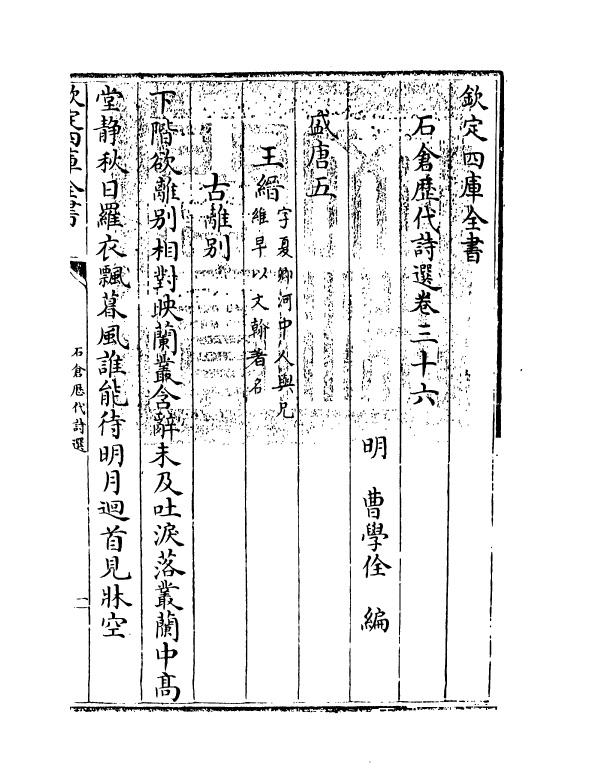 欽定四庫全書
石倉歷代詩選卷三十六
明　曹學佺　編
盛唐五
王縉字夏卿河中人與兄
維早以文翰著名
古離別
下階欲離別相對映蘭叢含辭未及吐淚落叢蘭中高
堂靜秋日羅衣飄暮風誰能待明月迴首見牀空
欽定四庫全書
石倉歷代詩選